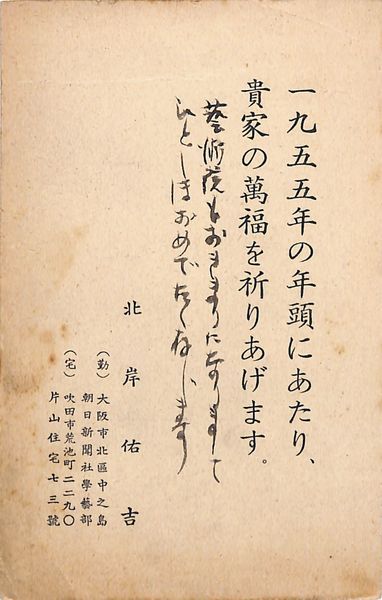 一九五五年の年頭にあたり、
貴家の萬福を祈りあげます。
藝術院もおきまりになりまして
ひとしほおめでたく存じます
北岸佑吉
(勤)大阪市北區中之島
朝日新聞社學藝部
(宅)吹田市荒池町二二九〇
片山住宅七三號